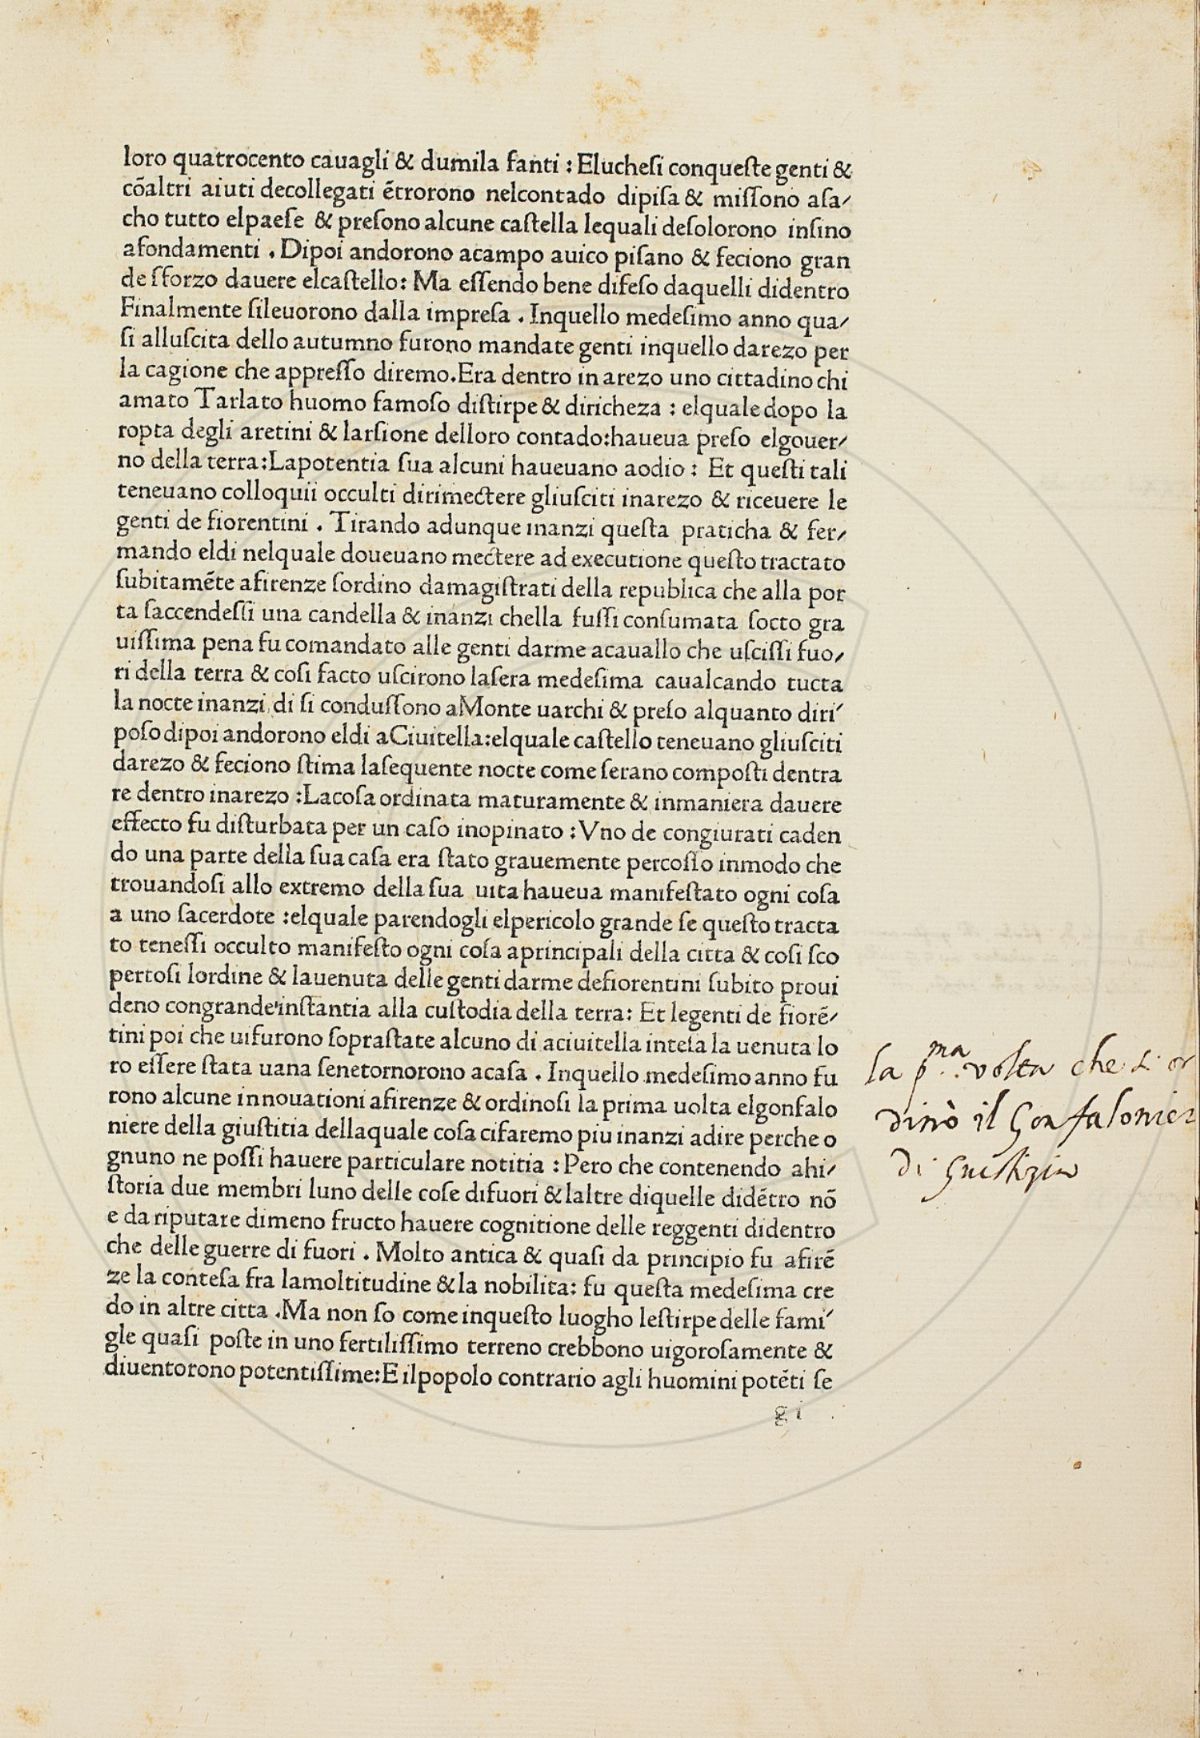 loro quatrocento cauagli & dumila fanti : Eluchesi conqueste genti &
cōaltri aiuti decollegati ētrorono nelcontado dipisa & missono asa/
cho tutto elpaese & presono alcune castella lequali desolorono insino
afondamenti . Dipoi andorono acampo auico pisano & feciono gran
de sforzo dauere elcastello: Ma essendo bene difeso daquelli didentro
Finalmente sileuorono dalla impresa . Inquello medesimo anno qua/
si alluscita dello autumno furono mandate genti inquello darezo per
la cagione che appresso diremo.Era dentro in arezo uno cittadino chi
amato Tarlato huomo famoso distirpe & diricheza : elquale dopo la
ropta degli aretini & larsione delloro contado:haueua preso elgouer/
no della terra:Lapotentia sua alcuni haueuano aodio : Et questi tali
teneuano colloquii occulti dirimectere gliusciti inarezo & riceuere le
genti de fiorentini . Tirando adunque inanzi questa praticha & fer/
mando eldi nelquale doueuano mectere ad executione questo tractato
subitamēte afirenze sordino damagistrati della republica che alla por
ta saccendessi una candella & inanzi chella fussi consumata socto gra
uissima pena fu comandato alle genti darme acauallo che uscissi fuo/
ri della terra & cosi facto uscirono lasera medesima caualcando tucta
la nocte inanzi di si condussono aMonte uarchi & preso alquanto diri/
poso dipoi andorono eldi aCiuitella:elquale castello teneuano gliusciti
darezo & feciono stima lasequente nocte come serano composti dentra
re dentro inarezo :Lacosa ordinata maturamente & inmaniera dauere
effecto fu disturbata per un caso inopinato : Vno de congiurati caden
do una parte della sua casa era stato grauemente percosso inmodo che
trouandosi allo extremo della sua uita haueua manifestato ogni cosa
a uno sacerdote :elquale parendogli elpericolo grande se questo tracta
to tenessi occulto manifesto ogni cosa aprincipali della citta & cosi sco
pertosi lordine & lauenuta delle genti darme defiorentini subito proui
deno congrande instantia alla custodia della terra: Et legenti de fiorē/
tini poi che uifurono soprastate alcuno di aciuitella intesa la uenuta lo
ro essere stata uana senetornorono acasa . Inquello medesimo anno fu
rono alcune innouationi afirenze & ordinosi la prima uolta elgonfalo
niere della giustitia dellaquale cosa cifaremo piu inanzi adire perche o
gnuno ne possi hauere particulare notitia : Pero che contenendo ahi/
storia due membri luno delle cose difuori & laltre diquelle didētro nō
e da riputare dimeno fructo hauere cognitione delle reggenti didentro
che delle guerre di fuori . Molto antica & quasi da principio fu afirē
ze la contesa fra lamoltitudine & la nobilita: fu questa medesima cre
do in altre citta .Ma non so come inquesto luogho lestirpe delle fami/
gle quasi poste in uno fertilissimo terreno crebbono uigorosamente &
diuentorono potentissime:E ilpopolo contrario agli huomini potēti se
g i
la p.ma volta che s' or
dinò il Gonfalonier
di Giustizia